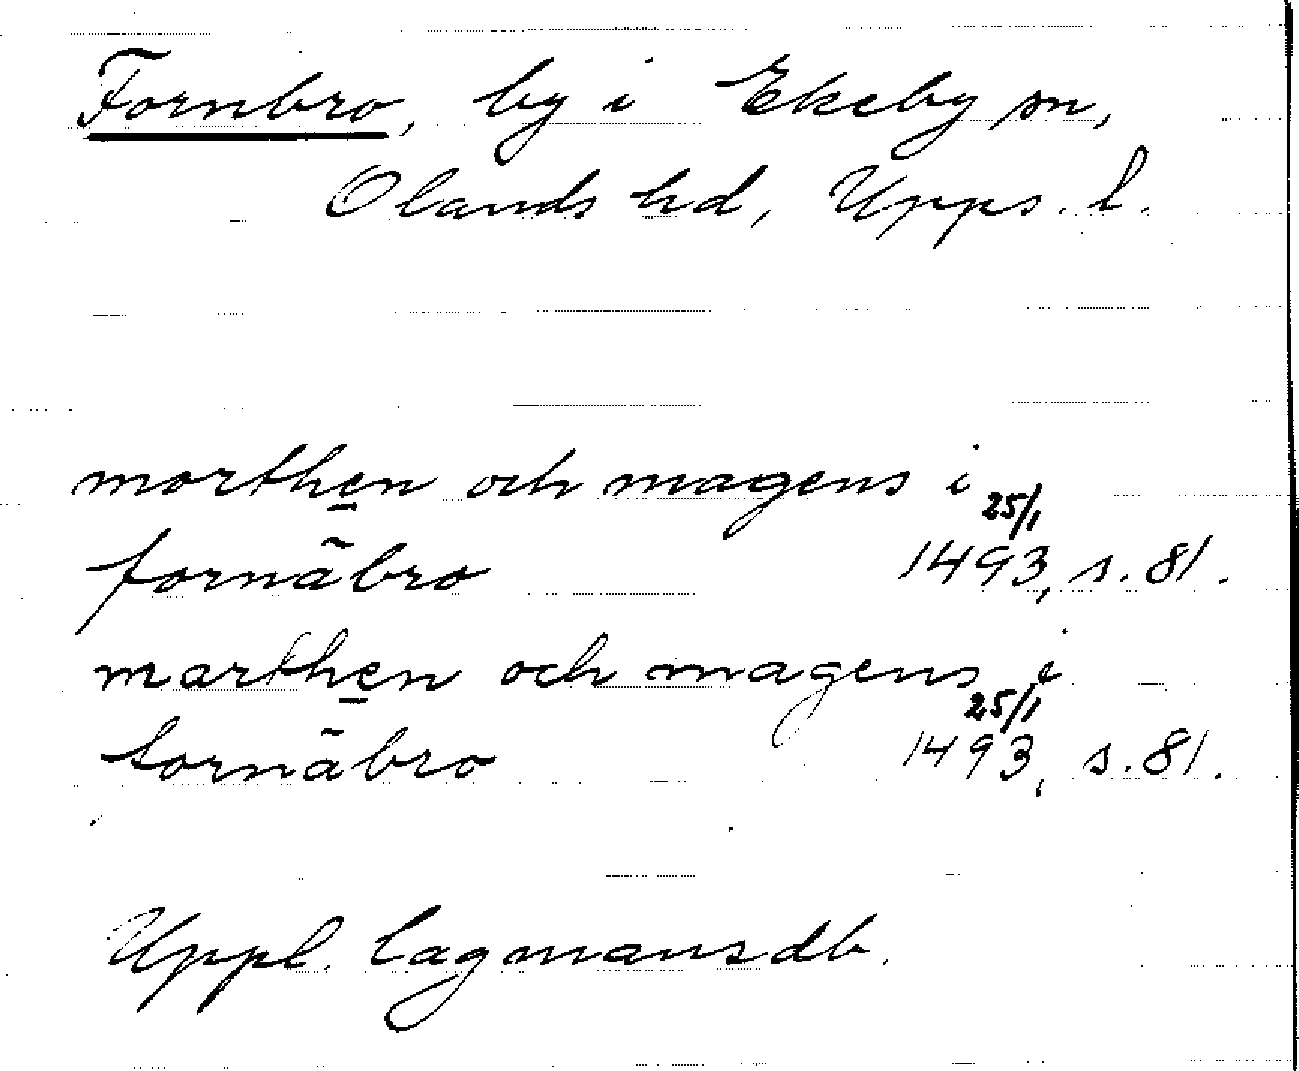 Fornbro, by i Ekeby sn,
Olands hd, Upps. l.
morthen och magens i
fornābro 25/1 1493, s. 81.
marthen och magens i
tornābro 25/1 1493, s. 81.
Uppl. lagmansdb.